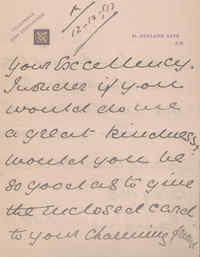 A
12-19-13
41. RUTLAND GATE
S.W.
Your Excellency.
I wonder if you
would do me
a great kindness,
would you be
so good as to give
the enclosed card
to your charming friend